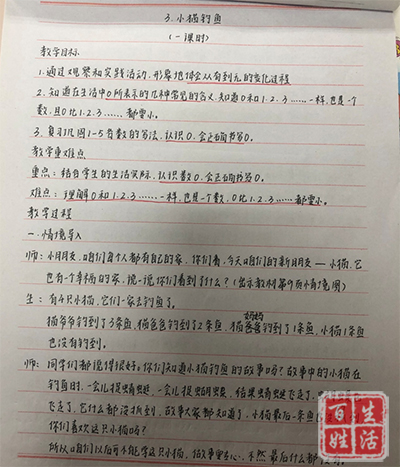 3.小猫钓鱼
(一课时)
教学目标
1.通过观察和实践活动,形象地体会从有到无的变化过程
2.知道在生活中0所表示的几种常见的含义,知道0和1.2.3……一样,也是一个
数,且0比1.2.3……都要小。
3.复习巩固1-5各数的写法,认识0,会正确书写0。
教学重难点
重点:结合学生的生活实际,认识数0,会正确书写0。
难点:理解0和1.2.3……一样,也是一个数,0比1.2.3……都要小。
教学过程
一.情境导入
师:小朋友,咱们每个人都有自己的家,你们看,今天咱们的新朋友——小猫,它
也有个幸福的家,说一说你们看到了什么?(出示教材第9页情境图)
生:有4只小猫,它们一家去钓鱼了。
妈妈
猫爷爷钓到了3条鱼,猫爸爸钓到了2条鱼,猫爸爸钓到了1条鱼,小猫1条鱼
也没有钓到。
师:同学们都说得很好。你们知道小猫钓鱼的故事吗?故事中的小猫在
钓鱼时,一会儿捉蜻蜓,一会儿捉蝴蝶,结果蜻蜓飞走了,
飞走了,它什么都没抓到,故事大家都知道了,小猫最后一条鱼
你们喜欢这只小猫吗?
所以咱们以后可不能学这只小猫,做事要专心,不然最后什么都
百姓生活